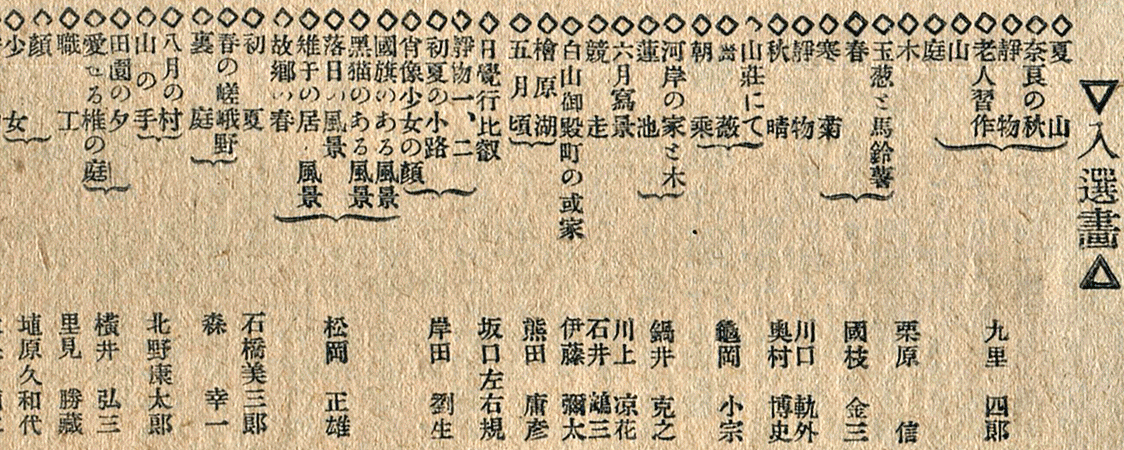 ▽入選畫△
◇夏山
◇奈良の秋
◇靜物
◇老人習作
◇山
◇庭
九里四郎
◇木
栗原信
◇玉葱と馬鈴薯
◇春
◇寒菊
國枝金三
◇靜物
川口軌外
◇秋晴
奥村博史
◇山莊にて
◇薔薇
◇朝乘
龜岡小宗
◇河岸の家と木
◇蓮池
鍋井克之
◇六月寫景
川上凉花
◇競走
石井鶴三
◇白山御殿町の或家
伊藤彌太
◇檜原湖
◇五月頃
熊田庸彦
◇日覺行比叡
坂口左右規
◇靜物一、二
◇初夏の小路
◇肖像少女の顏
岸田劉生
◇國旗のある風景
◇黑猫のある風景
◇落日の風景
◇雉子の居風景
◇故郷の春
松岡正雄
◇初夏
石橋美三郎
◇春の嵯峨野
◇裏庭
森幸一
◇八月の村
◇山の手
北野康太郎
◇田園の夕
◇愛せる椎の庭
横井弘三
◇職工
里見勝藏
◇顏
◇少女
埴原久和代